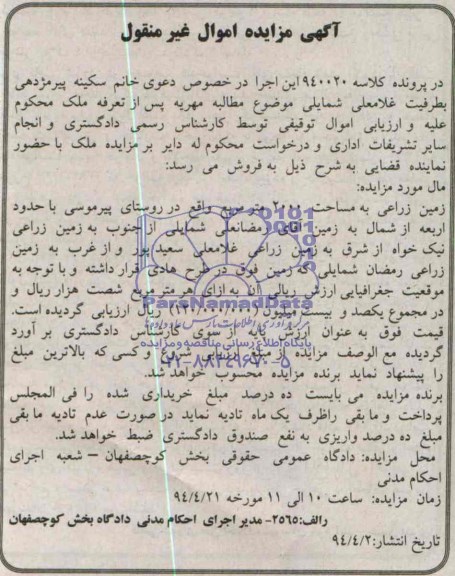 آگهی مزایده اموال غیر منقول
در پرونده کلاسه ۹۴۰۰۲۰ این اجرا در خصوص دعوی خانم سکینه پیرمژدهی
بطرفیت غلامعلی شمایلی موضوع مطالبه مهریه پس از تعرفه ملک محکوم
علیه و ارزیابی اموال توقیفی توسط کارشناس رسمی دادگستری و انجام
سایر تشریفات اداری و درخواست محکوم له دایر بر مزایده ملک با حضور
نماینده قضایی به شرح ذیل به فروش می رسد:
مال مورد مزایده:
زمین زراعی به مساحت ۲۰۰۰ متر مربع واقع در روستای پیرموسی با حدود
اربعه از شمال به زمین آقای رمضانعلی شمایلی از جنوب به زمین زراعی
نیک خواه از شرق به زمین زراعی غلامعلی سعید پور و از غرب به زمین
زراعی رمضان شمایلی که زمین فوق در طرح هادی قرار داشته و با توجه به
موقعیت جغرافیایی ارزش ریالی آن به ازای هر متر مربع شصت هزار ریال و
در مجموع یکصد و بیست میلیون (۱۲۰/۰۰۰/۰۰۰) ریال ارزیابی گردیده است.
قیمت فوق به عنوان ارزش پایه از سوی کارشناس دادگستری بر آورد
گردیده مع الوصف مزایده از مبلغ ارزیابی شروع و کسی که بالاترین مبلغ
را پیشنهاد نماید برنده مزایده محسوب خواهد شد.
برنده مزایده می بایست ده درصد مبلغ خریداری شده را فی المجلس
پرداخت و ما بقی راظرف یک ماه تادیه نماید در صورت عدم تادیه ما بقی
مبلغ ده درصد واریزی به نفع صندوق دادگستری ضبط خواهد شد.
محل مزایده: دادگاه عمومی حقوقی بخش کوچصفهان – شعبه اجرای
احکام مدنی
زمان مزایده: ساعت ۱۰ الی ۱۱ مورخه ۹۴/۴/۲۱
رالف:۲۵۶۵- مدیر اجرای احکام مدنی دادگاه بخش کوچصفهان
تاریخ انتشار:۹۴/۴/۲
ParsNamadData
پایگاه اطلاع رسانی مناقصه و مزایده
۰۲۱-۸۸۳۴۹۶۷۰-۵